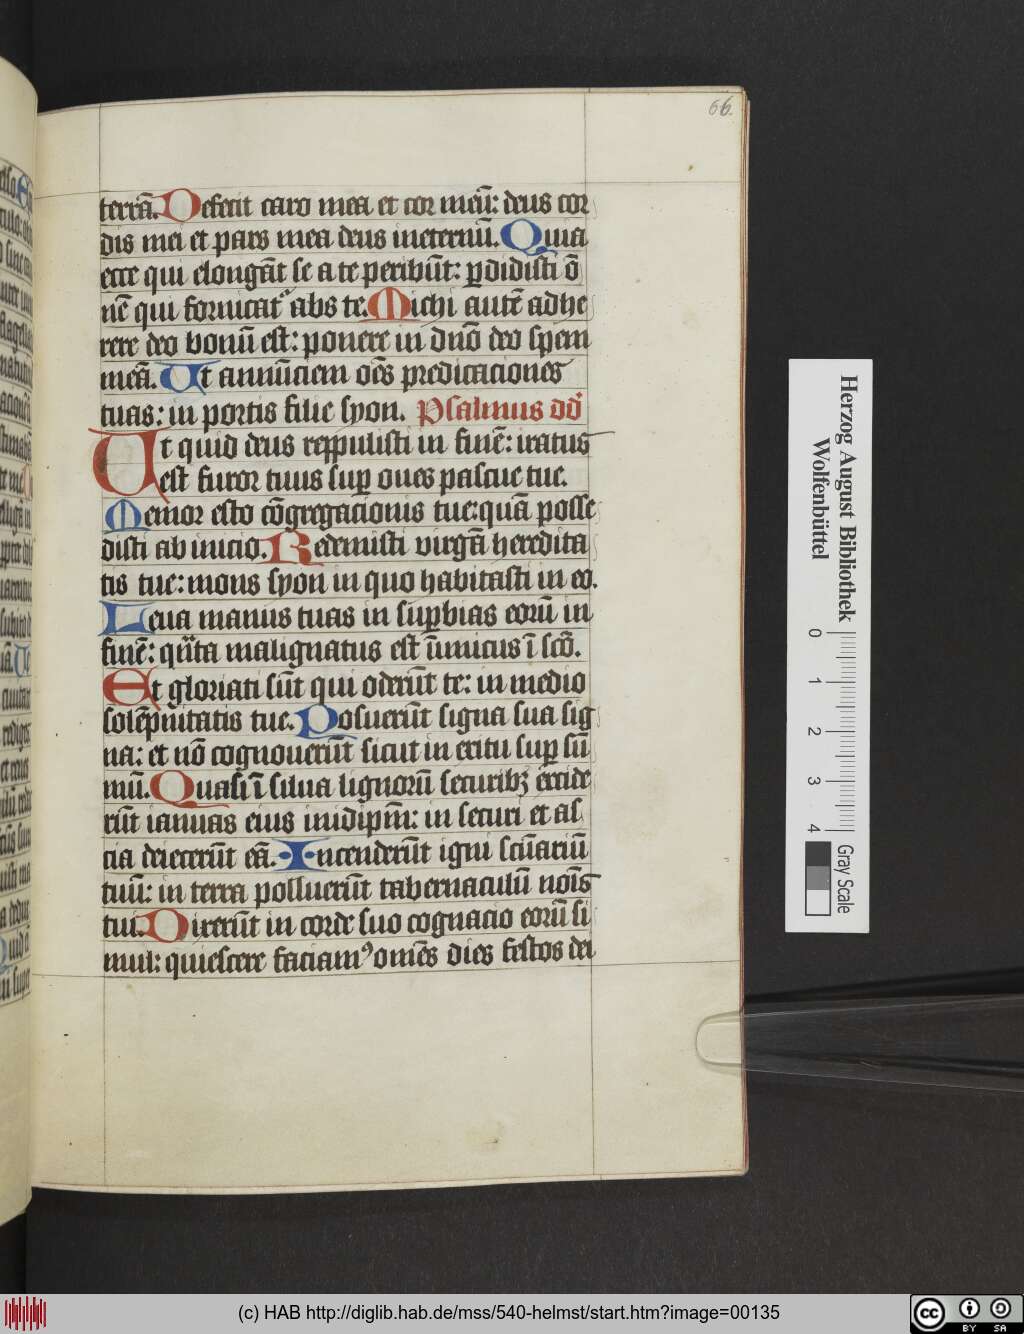 66.
terrā. Defecit caro mea et cor meū: deus cor
dis mei et pars mea deus ineternū. Quia
ecce qui elongāt se a te peribūt: ꝑdidisti ō
nē qui fornicat᷑ abs te. Michi autē adhe
rere deo bonū est: ponere in dnō deo spem
meā. Ut annūciem oēs predicaciones
tuas: in portis filie syon. Psalmus dd̄
Ut quid deus reppulisti in finē: iratus
est furor tuus suꝑ oues pascue tue.
Memor esto cōgregacionis tue: quā posse
disti ab inicio. Redemisti virgā heredita
tis tue: mons syon in quo habitasti in eo.
Leua manus tuas in suꝑbias eorū in
finē: quāta malignatus est īimicus ī scō.
Et gloriati sūt qui oderūt te: in medio
solēpnitatis tue. Posuerūt signa sua sig
na: et nō cognouerūt sicut in exitu suꝑ sū
mū. Quasi ī silua lignorū securibꝫ excide
rūt ianuas eius inidipm̄: in securi et as
cia deiecerūt eā. Incenderūt igni scūariū
tuū: in terra polluerūt tabernaculū noīs
tui. Dixerūt in corde suo cognacio eorū si
mul: quiescere faciamꝰ omēs dies festos dei
Herzog August Bibliothek
Wolfenbüttel
0 1 2 3 4
Gray Scale
(c) HAB http://diglib.hab.de/mss/540-helmst/start.htm?image=00135
cc BY SA